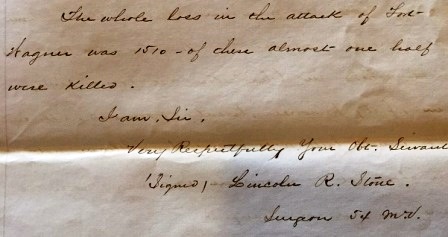 The whole loss in the attack of Fort
Wagner was 1510 - of these almost one half
were killed.
I am, Sir,
Very Respectfully Your Obt. Servant
(Signed) Lincoln R. Stone.
Surgeon 54 M.V.